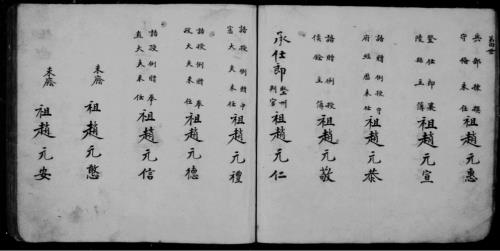 兵部
守備未任
祖趙元惠
登仕郎
陵縣主簿
祖趙元宣
府經歷未任
祖趙元恭
誥贈例授
候銓主簿
祖趙元敬
承仕郎
登州
判官
祖趙元仁
誥授例贈中
憲大夫未任
祖趙元禮
誥授例贈奉
政大夫未任
祖趙元德
誥授例贈奉
直大夫未任
祖趙元信
未蔭
祖趙元愍
未蔭
祖趙元安